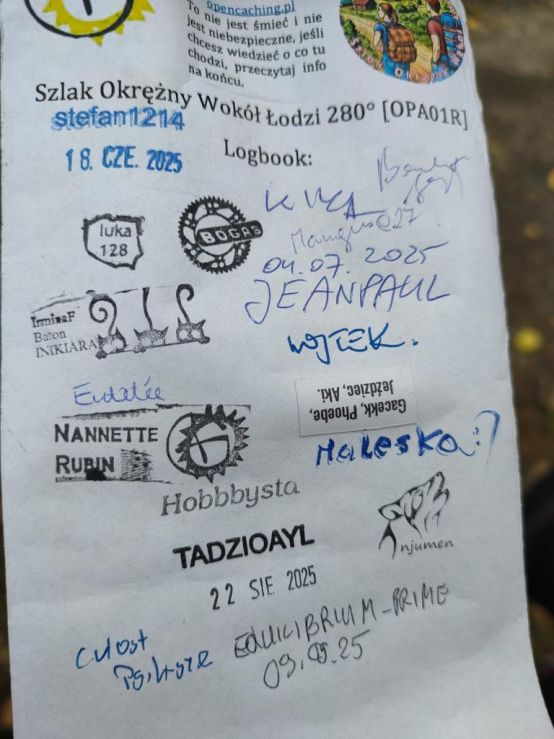 opencaching.pl
To nie jest śmieć i nie
jest niebezpieczne, jeśli
chcesz wiedzieć o co tu
chodzi, przeczytaj info
na końcu.
Szlak Okrężny Wokół Łodzi 280° [OPA01R]
stefan1214
18. CZE. 2025
Logbook:
luka
128
BOGAS
04.07.2025
JEANPAUL
IrminaF
Baton
INIKIARA
WOJTEK.
Gacekk, Phoebe,
Jeździec, Aki.
NANNETTE
RUBIN
Maleska:)
Hobbbysta
Anjumen
TADZIOAYL
22 SIE 2025
EQUILIBRIUM-PRIME